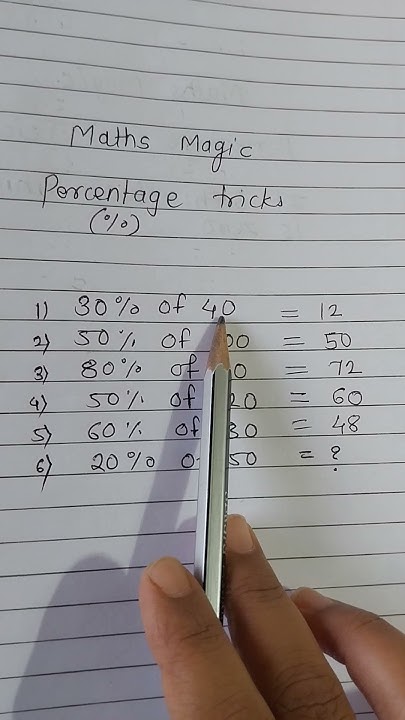 Maths Magic
Percentage tricks
(%)
1) 30% of 40 = 12
2) 50% of 00 = 50
3) 80% of 0 = 72
4) 50% of 20 = 60
5) 60% of 80 = 48
6) 20% of 50 = ?